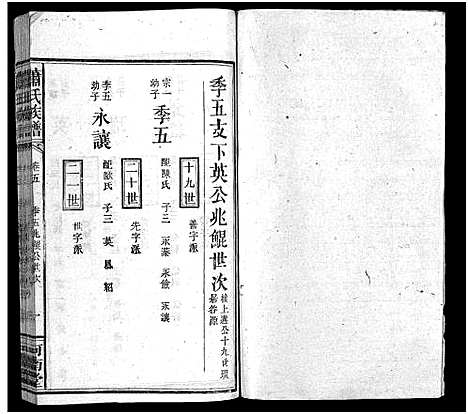 季五支下英公兆鯤世次
接上進公十九世環
十九世
善字派
宗一幼子
季五
配陳氏 子三 永泰 永儉 永讓
二十世
先字派
季五幼子
永讓
配歐氏 子三 英 鳳 韶
二一世
世字派
蕭氏族譜
卷五
季五兆鯤公世次
一
河南堂